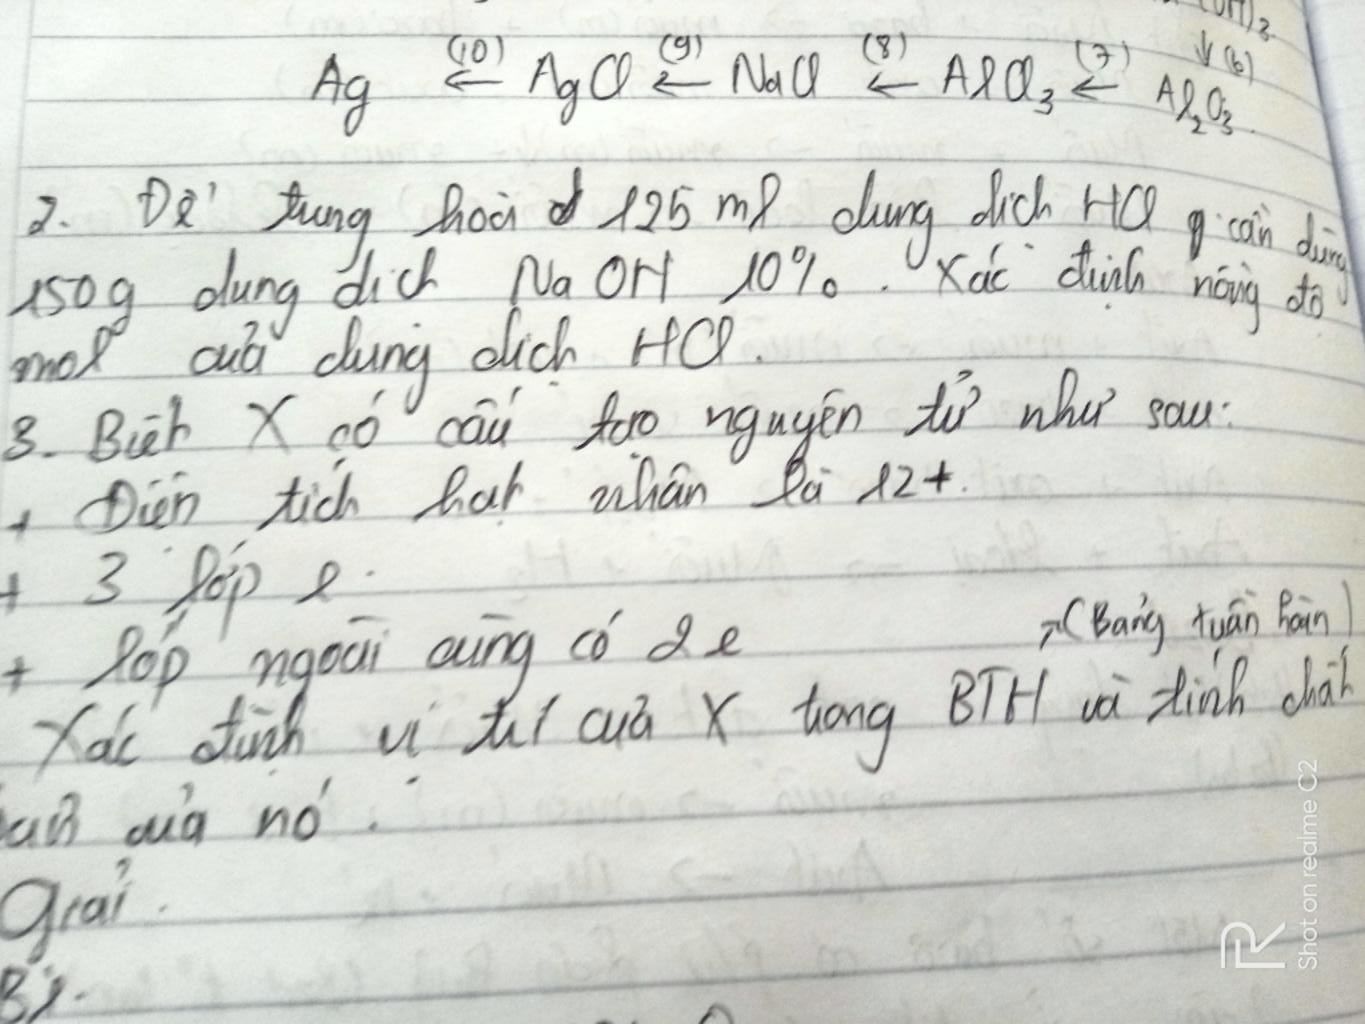 (OH)3
↓(6)
Ag ←(10) AgCl ←(9) NaCl ←(8) AlCl3 ←(7) Al2O3
2. Để trung hoà 125 ml dung dịch HCl cần dùng
150g dung dịch NaOH 10%. Xác định nồng độ
mol của dung dịch HCl.
3. Biết X có cấu tạo nguyên tử như sau:
+ Điện tích hạt nhân là 12+.
+ 3 lớp e.
+ lớp ngoài cùng có 2e
(Bảng tuần hoàn)
Xác định vị trí của X trong BTH và tính chất
của nó.
Giải.
B1.
Shot on realme C2